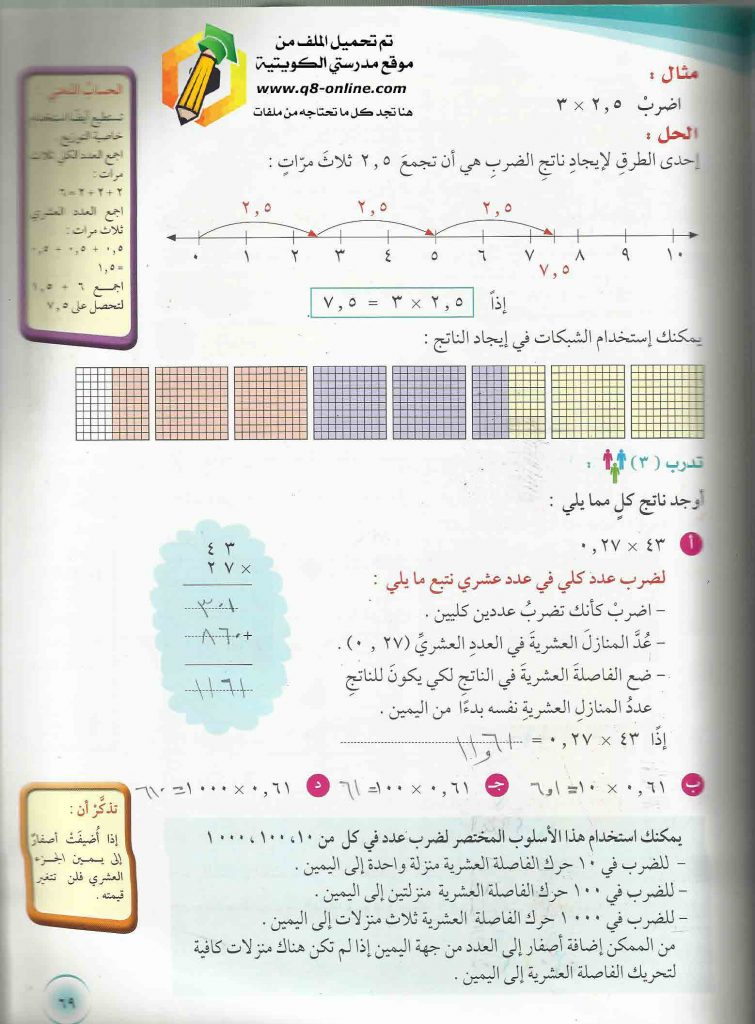 تم تحميل الملف من
موقع مدرستي الكويتية
www.q8-online.com
هنا تجد كل ما تحتاجه من ملفات
مثال :
اضربْ ٢,٥ × ٣
الحل :
إحدى الطرقِ لإيجادِ ناتجِ الضربِ هي أن تجمعَ ٢,٥ ثلاثَ مرّاتٍ :
٢,٥ ٢,٥ ٢,٥
٠ ١ ٢ ٣ ٤ ٥ ٦ ٧ ٨ ٩ ١٠
٧,٥
إذاً ٢,٥ × ٣ = ٧,٥
الحساب الذهني
تستطيع أيضًا استخدام
خاصية التوزيع.
اجمع العدد الكلي ثلاث
مرات :
٢ + ٢ + ٢ = ٦
اجمع العدد العشري
ثلاث مرات :
٠,٥ + ٠,٥ + ٠,٥
= ١,٥
اجمع ٦ + ١,٥
لتحصل على ٧,٥
يمكنك إستخدام الشبكات في إيجاد الناتج :
تدرب (٣) :
أوجد ناتج كلٍ مما يلي :
أ ٤٣ × ٠,٢٧
لضرب عدد كلي في عدد عشري نتبع ما يلي :
– اضربْ كأنك تضربُ عددين كليين .
– عُدَّ المنازلَ العشريةَ في العددِ العشريِّ (٠,٢٧) .
– ضع الفاصلةَ العشريةَ في الناتجِ لكي يكونَ للناتجِ
عددُ المنازلِ العشريةِ نفسه بدءًا من اليمين .
إذًا ٤٣ × ٠,٢٧ = ١١,٦١
٤٣
× ٢٧
٣٠١
+ ٨٦٠
١١٦١
ب ٠,٦١ × ١٠ = ٦,١ جـ ٠,٦١ × ١٠٠ = ٦١ د ٠,٦١ × ١٠٠٠ = ٦١٠
يمكنك استخدام هذا الأسلوب المختصر لضرب عدد في كل من ١٠، ١٠٠، ١٠٠٠
– للضرب في ١٠ حرك الفاصلة العشرية منزلة واحدة إلى اليمين .
– للضرب في ١٠٠ حرك الفاصلة العشرية منزلتين إلى اليمين .
– للضرب في ١٠٠٠ حرك الفاصلة العشرية ثلاث منزلات إلى اليمين .
من الممكن إضافة أصفار إلى العدد من جهة اليمين إذا لم تكن هناك منزلات كافية
لتحريك الفاصلة العشرية إلى اليمين .
تذكَّرْ أن :
إذا أُضيفَتْ أصفارٌ
إلى يمين الجزء
العشري فلن تتغير
قيمته .
٦٩